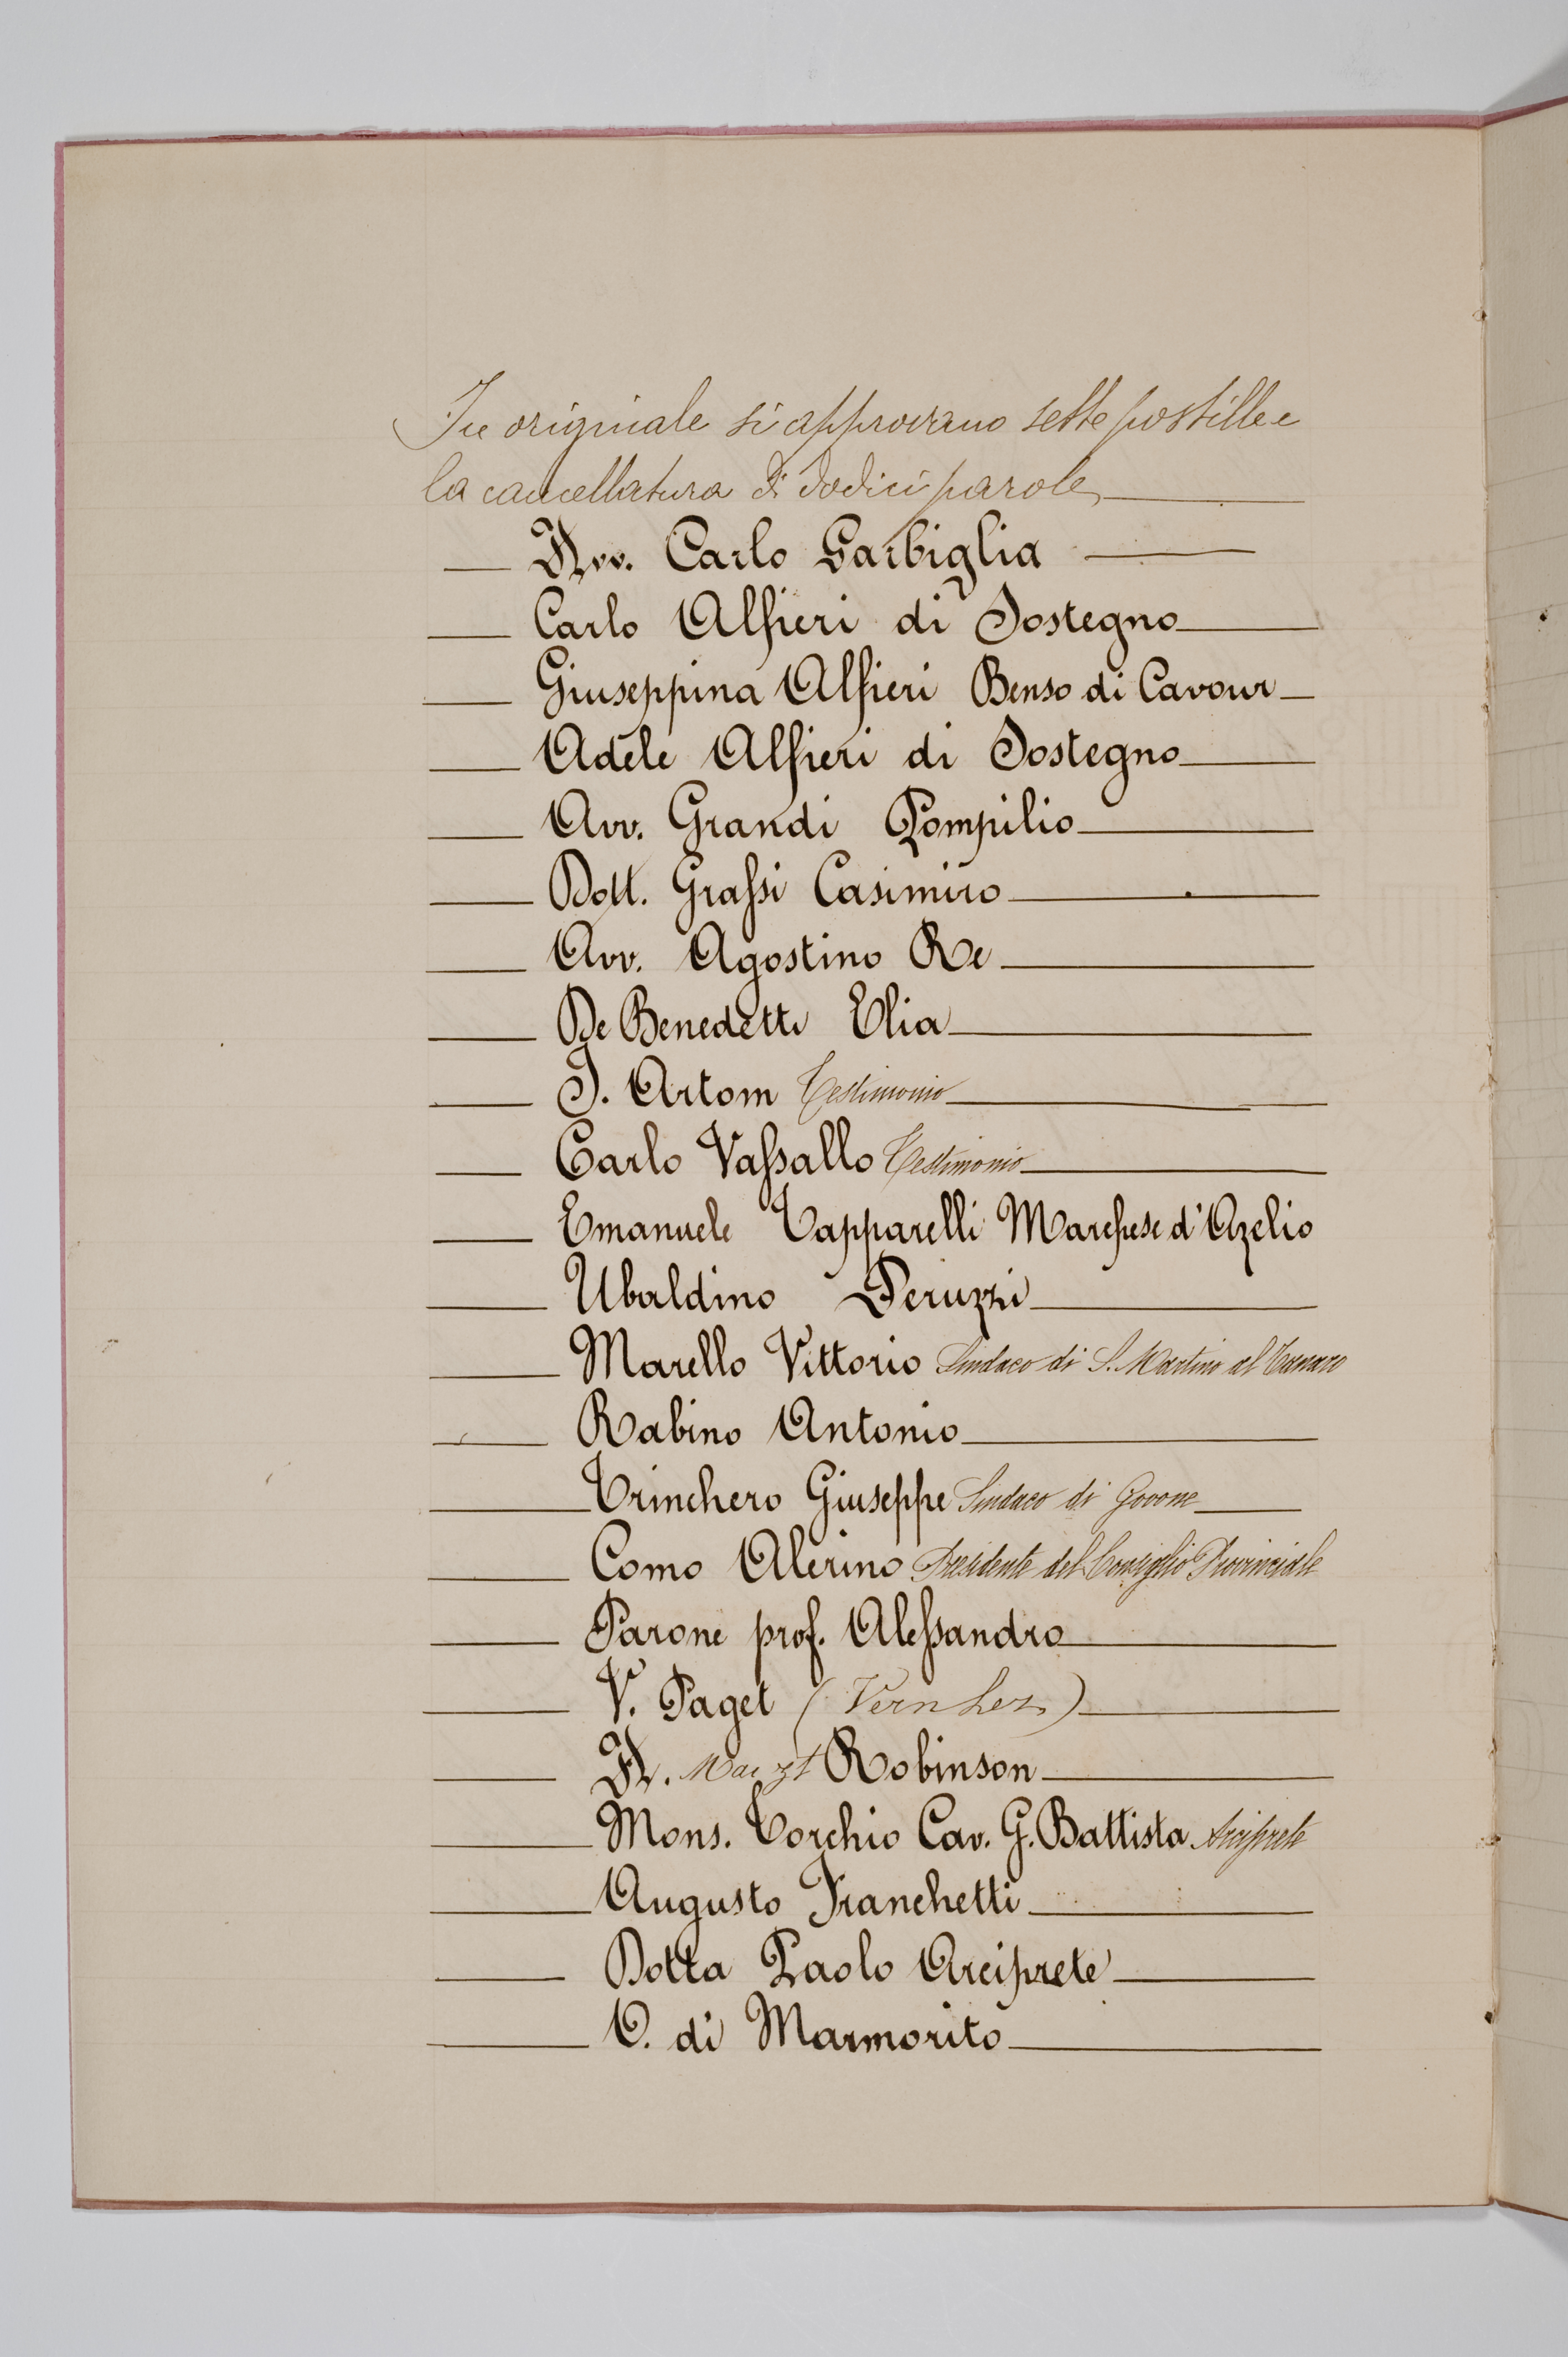 In originale si approvano sette postille e
la cancellatura di dodici parole
Avv. Carlo Garbiglia
Carlo Alfieri di Sostegno
Giuseppina Alfieri Benso di Cavour
Adele Alfieri di Sostegno
Avv. Grandi Pompilio
Dott. Grassi Casimiro
Avv. Agostino Re
De Benedetti Elia
I. Artom Testimonio
Carlo Vassallo Testimonio
Emanuele Tapparelli Marchese d'Azelio
Ubaldino Peruzzi
Marello Vittorio Sindaco di S. Martino al Tanaro
Rabino Antonio
Trinchero Giuseppe Sindaco di Govone
Como Alerino Presidente del Consiglio Provinciale
Parone prof. Alessandro
V. Paget (Vernhez)
A. Robinson
Mons. Torchio Cav. G. Battista Arciprete
Augusto Franchetti
Dotta Paolo Arciprete
O. di Marmorito